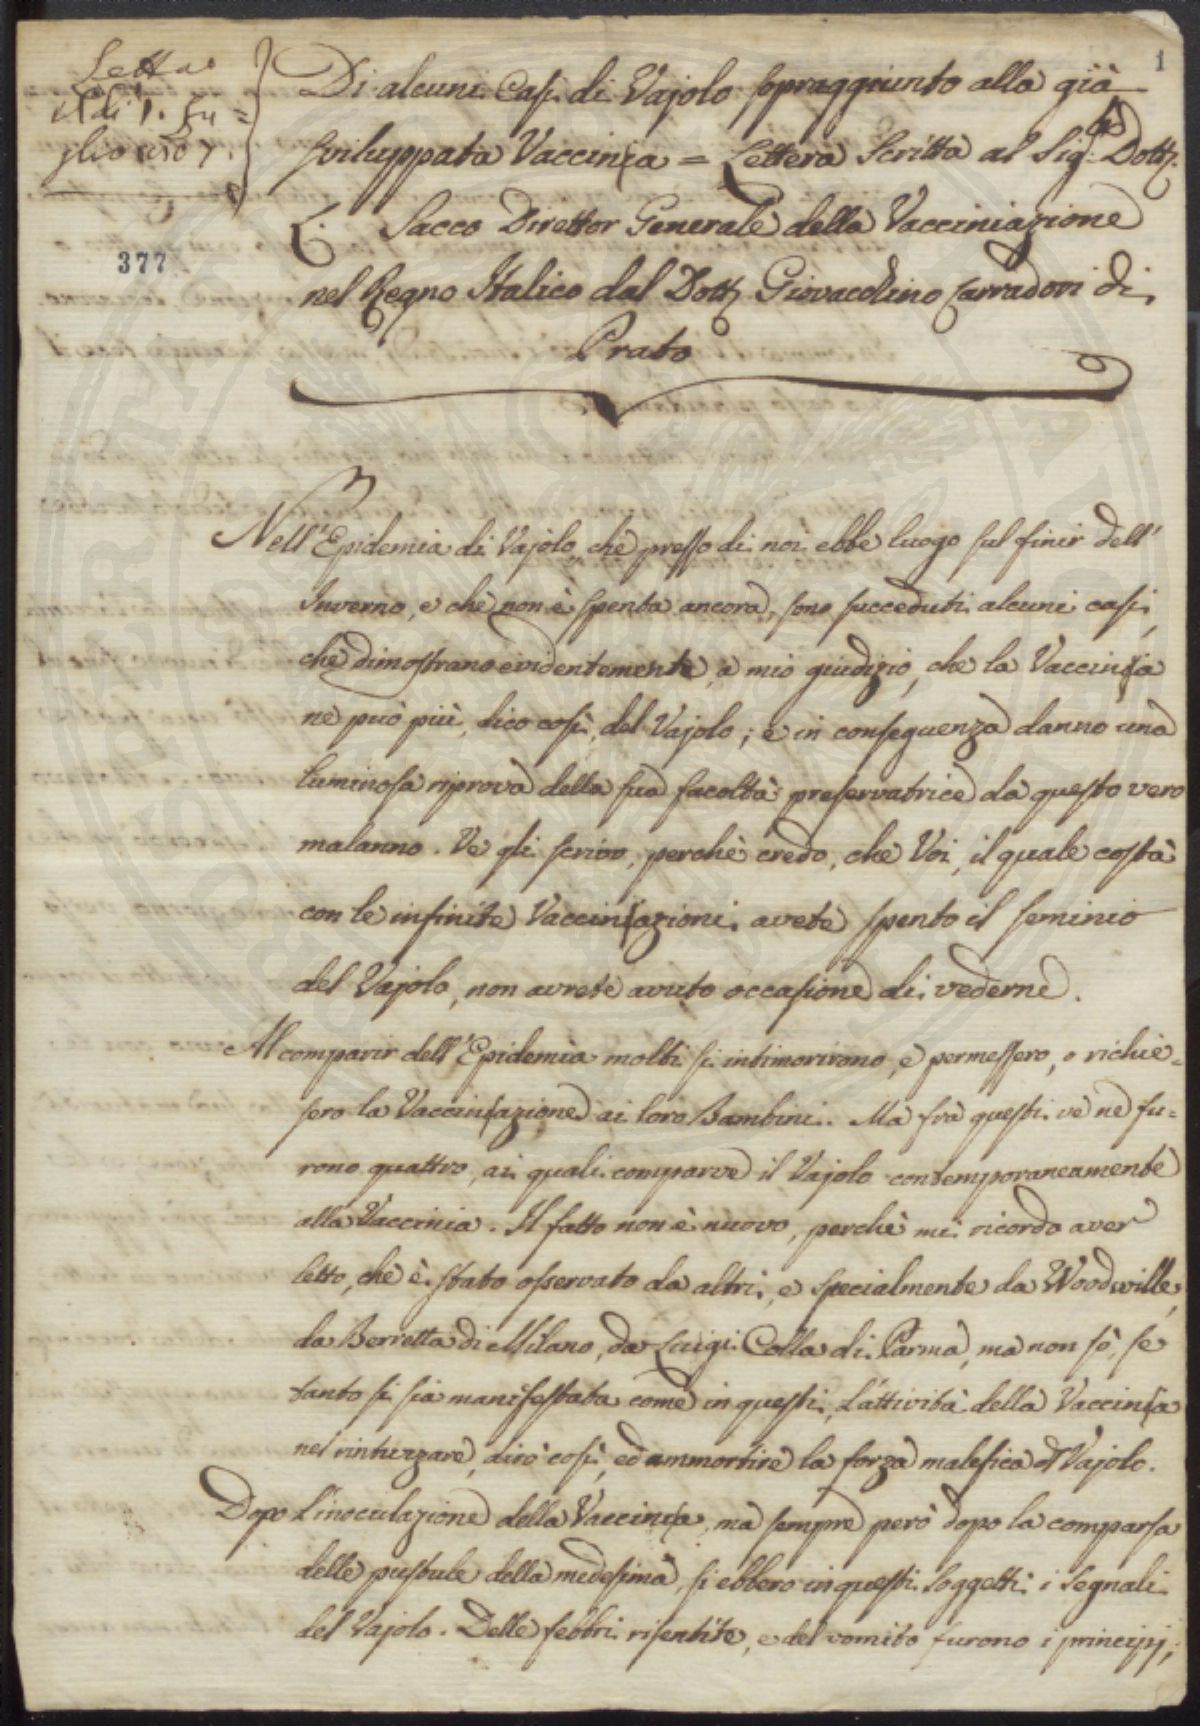 Letta
il dì 1. Lu=
glio 1807.
1
377
Di alcuni Casi di Vajolo sopraggiunto alla già
sviluppata Vaccinia = Lettera Scritta al Sig. Dott.
L. Sacco Direttor Generale della Vacciniazione
nel Regno Italico dal Dott. Giovacchino Carradori di
Prato
Nell'Epidemia di Vajolo, che presso di noi ebbe luogo sul finir dell'
Inverno, e che non è spenta ancora, sono succeduti alcuni casi,
che dimostrano evidentemente, a mio giudizio, che la Vaccinia
ne può più, dico così, del Vajolo; e in conseguenza danno una
luminosa riprova della sua facoltà preservatrice da questo vero
malanno. Ve gli scrivo, perchè credo, che Voi, il quale costà
con le infinite Vacciniazioni avete spento il seminio
del Vajolo, non avrete avuto occasione di vederne.
Al comparir dell'Epidemia molti si intimorirono, e permessero, o richie=
sero la Vacciniazione ai loro Bambini. Ma frà questi ve ne fu=
rono quattro, ai quali comparve il Vajolo contemporaneamente
alla Vaccinia. Il fatto non è nuovo, perchè mi ricordo aver
letto, che è stato osservato da altri, e specialmente da Woodwille,
da Berretta di Milano, da Luigi Colla di Parma, ma non sò, se
tanto si sia manifestata come in questi, l'attività della Vaccinia
nel rintuzzare, dirò così, ed ammortire la forza malefica d Vajolo.
Dopo l'inoculazione della Vaccinia, ma sempre però dopo la comparsa
delle pustule della medesima, si ebbero in questi soggetti i segnali
del Vajolo. Delle febbri risentite, e del vomito furono i principj,